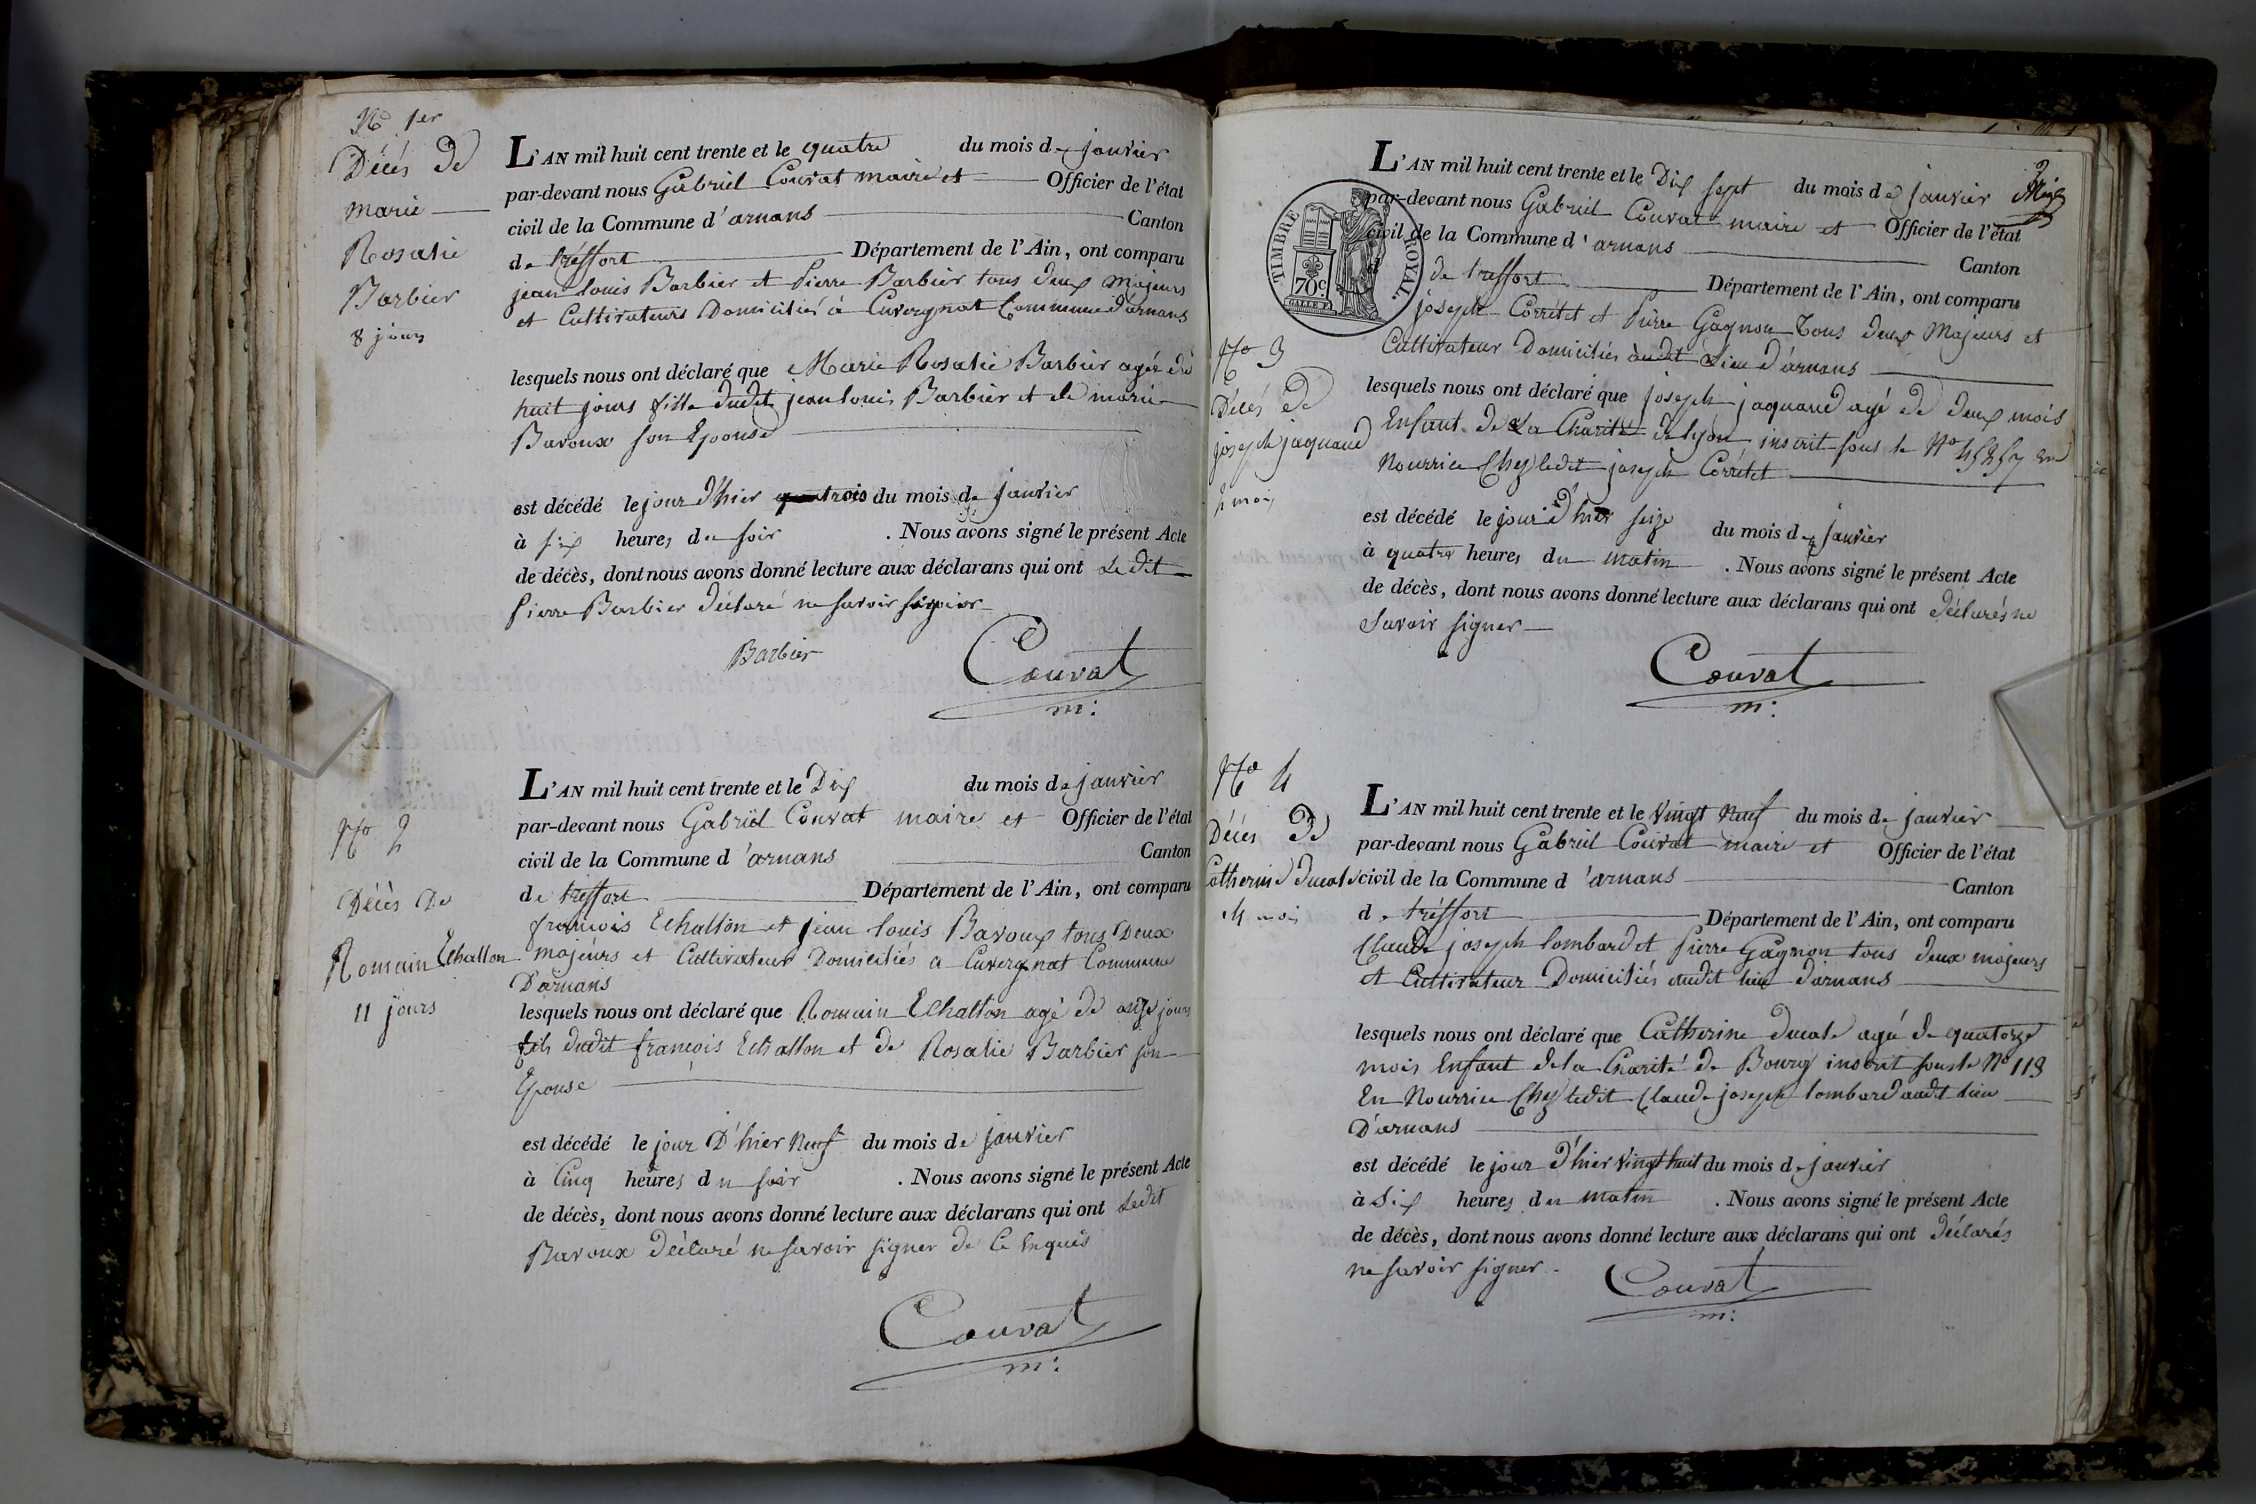 No 1er
Décés de
marie
Rosalie
Barbier
8 jours
L'AN mil huit cent trente et le quatre du mois de janvier
par-devant nous Gabriel Couvat maire et Officier de l'état
civil de la Commune d'arnans Canton
de tréffort Département de l'Ain, ont comparu
jean louis Barbier et Pierre Barbier tous deux Majeurs
et Cultivateurs Domiciliés à Cuvergnat Commune d'arnans
lesquels nous ont déclaré que Marie Rosalie Barbier agée de
huit jours fille dudit jean louis Barbier et de marie
Bavoux son Epouse
est décédé le jour d'hier trois du mois de janvier
à six heures du soir . Nous avons signé le présent Acte
de décès, dont nous avons donné lecture aux déclarans qui ont Ledit
Pierre Barbier déclaré ne savoir signer
Barbier
Couvat
m:
No 2
Décès De
Romain Echallon
11 jours
L'AN mil huit cent trente et le Dix du mois de janvier
par-devant nous Gabriel Couvat maire et Officier de l'état
civil de la Commune d'arnans Canton
de treffort Département de l'Ain, ont comparu
françois Echallon et jean louis Bavoux tous Deux
majeurs et Cultivateurs Domiciliés a Cuvergnat Commune
D'arnans
lesquels nous ont déclaré que Romain Echallon agé de onze jours
fils dudit françois Echallon et de Rosalie Barbier son
Epouse
est décédé le jour D'hier Neuf du mois de janvier
à Cinq heures du soir . Nous avons signé le présent Acte
de décès, dont nous avons donné lecture aux déclarans qui ont Ledit
Bavoux déclaré ne savoir signer de Ce Enquis
Couvat
m:
TIMBRE ROYAL.
70c.
2
L'AN mil huit cent trente et le Dix sept du mois de janvier
par-devant nous Gabriel Couvat maire et Officier de l'état
civil de la Commune d'arnans Canton
de treffort Département de l'Ain, ont comparu
joseph Corrétet et Pierre Gagnon Tous deux Majeurs et
Cultivateur Domiciliés audit Lieu d'arnans
No 3
Décés de
joseph jaquand
2 mois
lesquels nous ont déclaré que joseph jaquand agé de deux mois
Enfant de La Charité de lyon inscrit sous le No en
Nourrice Chez ledit joseph Corrétet
est décédé le jour d'hier seize du mois de janvier
à quatre heures du matin . Nous avons signé le présent Acte
de décès, dont nous avons donné lecture aux déclarans qui ont déclarés ne
savoir signer
Couvat
m:
No 4
Décés de
Catherine ducate
14 mois
L'AN mil huit cent trente et le vingt Neuf du mois de janvier
par-devant nous Gabriel Couvat maire et Officier de l'état
civil de la Commune d'arnans Canton
de tréffort Département de l'Ain, ont comparu
Claude joseph lombard et Pierre Gagnon tous deux majeurs
et Cultivateur Domiciliés audit lieu d'arnans
lesquels nous ont déclaré que Catherine ducate agé de quatorze
mois Enfant de la Charité de Bourg inscrit sous le No 113
En Nourrice Chez ledit Claude joseph lombard audit lieu
D'arnans
est décédé le jour d'hier vingt huit du mois de janvier
à Six heures du matin . Nous avons signé le présent Acte
de décès, dont nous avons donné lecture aux déclarans qui ont déclarés
ne savoir signer
Couvat
m: